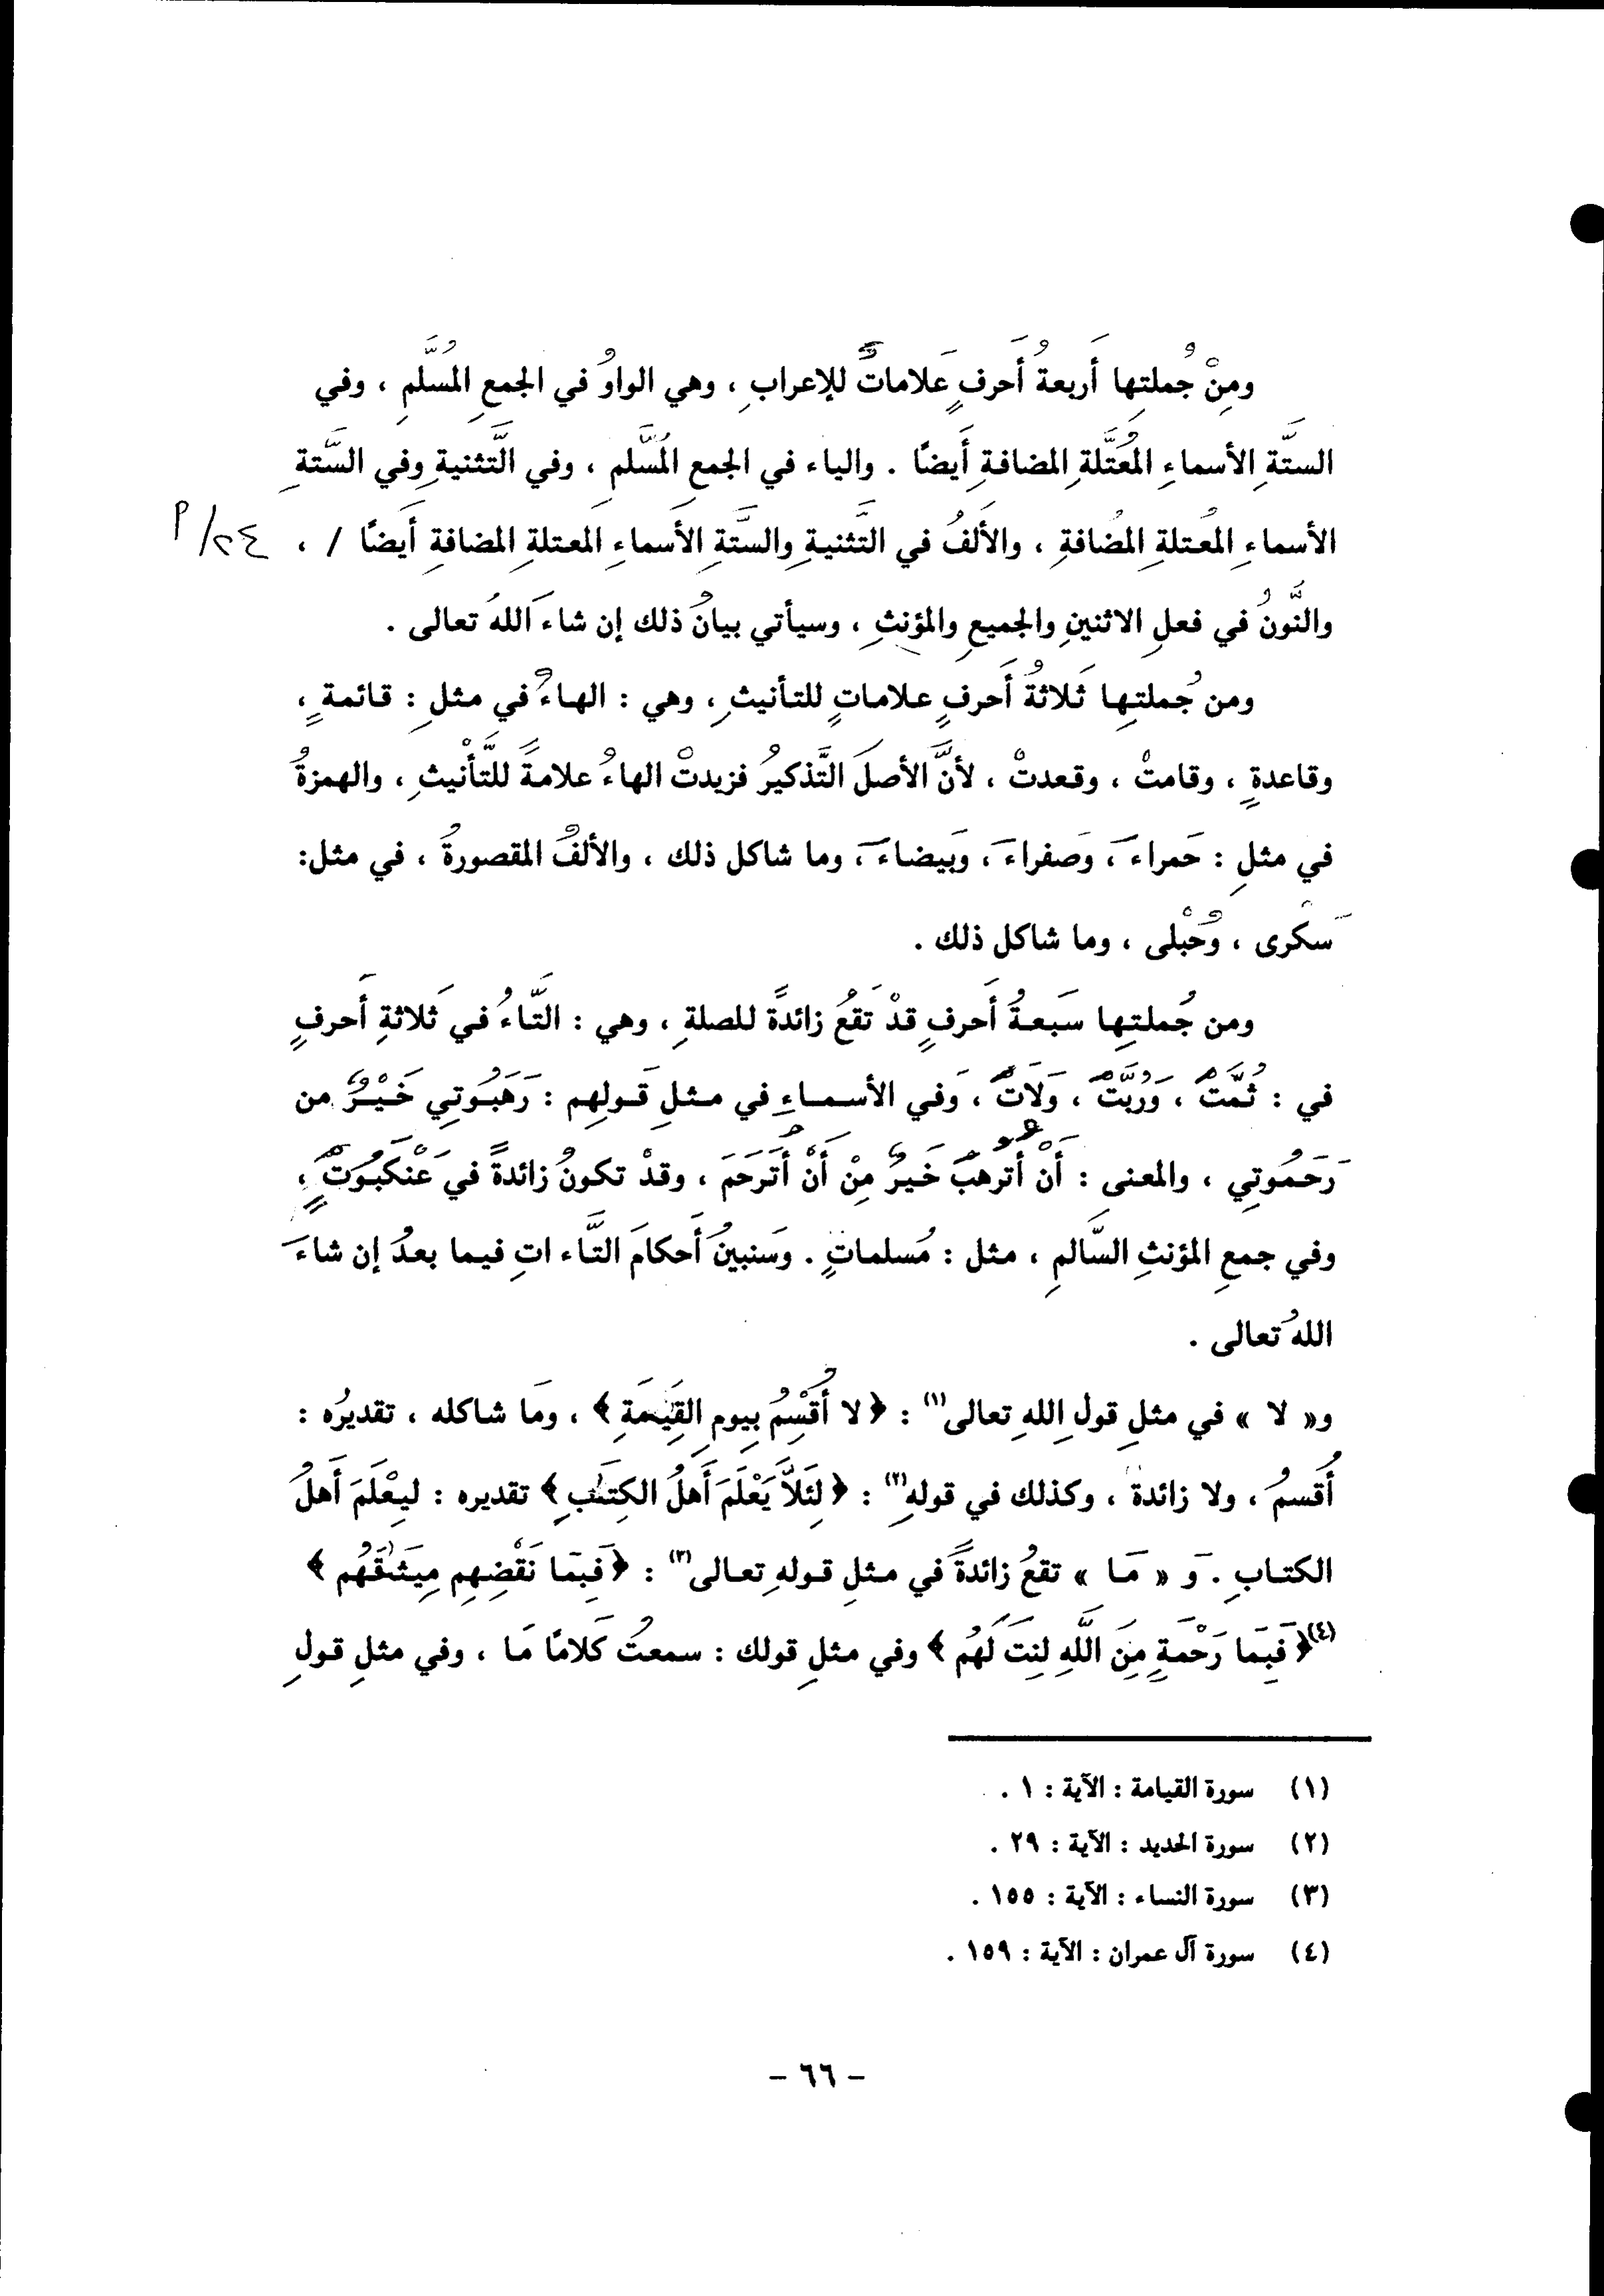 ومِنْ جُملتِها أَربعةُ أَحرفٍ عَلاماتٌ للإعرابِ ، وهي الواوُ في الجمعِ المُسَلَّمِ ، وفي
الستَّةِ الأسماءِ المُعتَلَّةِ المضافةِ أَيضًا . والياء في الجمعِ المُسَّلم ، وفي التَّثنيةِ وفي السَّتةِ
الأسماءِ المُعتلةِ المُضافةِ ، والأَلفُ في التَّثنيةِ والسَّتةِ الأَسماءِ المعتلةِ المضافةِ أَيضًا / ، ٢٤/أ
والنُّونُ في فعلِ الاثنينِ والجميعِ والمؤنثِ ، وسيأتي بيانُ ذلك إن شاءَ اللهُ تعالى .
ومن جُملتِها ثَلاثةُ أَحرفٍ علاماتٍ للتأنيثِ ، وهي : الهاءُ في مثلِ : قائمةٍ ،
وقاعدةٍ ، وقامتْ ، وقعدتْ ، لأنَّ الأصلَ التَّذكيرُ فزيدتْ الهاءُ علامةً للتَّأنيثِ ، والهمزةُ
في مثلِ : حَمراءَ ، وَصفراءَ ، وَبيضاءَ ، وما شاكل ذلك ، والألفُ المقصورةُ ، في مثل:
سَكْرى ، وحُبْلى ، وما شاكل ذلك .
ومن جُملتِها سَبعةُ أَحرفٍ قدْ تَقعُ زائدةً للصلةِ ، وهي : التَّاءُ في ثَلاثةِ أَحرفٍ
في : ثُمَّتْ ، وَرُبَّتْ ، وَلَاتْ ، وَفي الأسماءِ في مثلِ قَولِهم : رَهَبُوتِي خَيْرٌ من
رَحَمُوتِي ، والمعنى : أَنْ أَترهبَ خَيرٌ مِنْ أَنْ أَتَرحَمَ ، وقدْ تكونُ زائدةً في عَنْكَبُوتٍ ،
وفي جمعِ المؤنثِ السَّالمِ ، مثل : مُسلماتٍ . وَسنبينُ أَحكامَ التَّاءاتِ فيما بعدُ إن شاءَ
اللهُ تعالى .
و« لا » في مثلِ قولِ اللهِ تعالى(١) : ﴿ لا أُقْسِمُ بِيومِ القِيَـٰمَةِ ﴾ ، وَما شاكله ، تقديرُه :
أُقسمُ ، ولا زائدة ، وكذلك في قولهِ(٢) : ﴿ لِئَلاَّ يَعْلَمَ أَهلُ الكِتَـٰبِ ﴾ تقديره : ليعْلَمَ أَهلُ
الكتابِ . وَ « مَا » تقعُ زائدةً في مثلِ قولهِ تعالى(٣) : ﴿ فَبِمَا نَقْضِهِم مِيثَـٰقَهُم ﴾
(٤)﴿ فَبِمَا رَحْمَةٍ مِنَ اللَّهِ لِنتَ لَهُم ﴾ وفي مثلِ قولك : سمعتُ كَلامًا مَا ، وفي مثلِ قولِ
(١) سورة القيامة : الآية : ١ .
(٢) سورة الحديد : الآية : ٢٩ .
(٣) سورة النساء : الآية : ١٥٥ .
(٤) سورة آل عمران : الآية : ١٥٩ .
- ٦٦ -